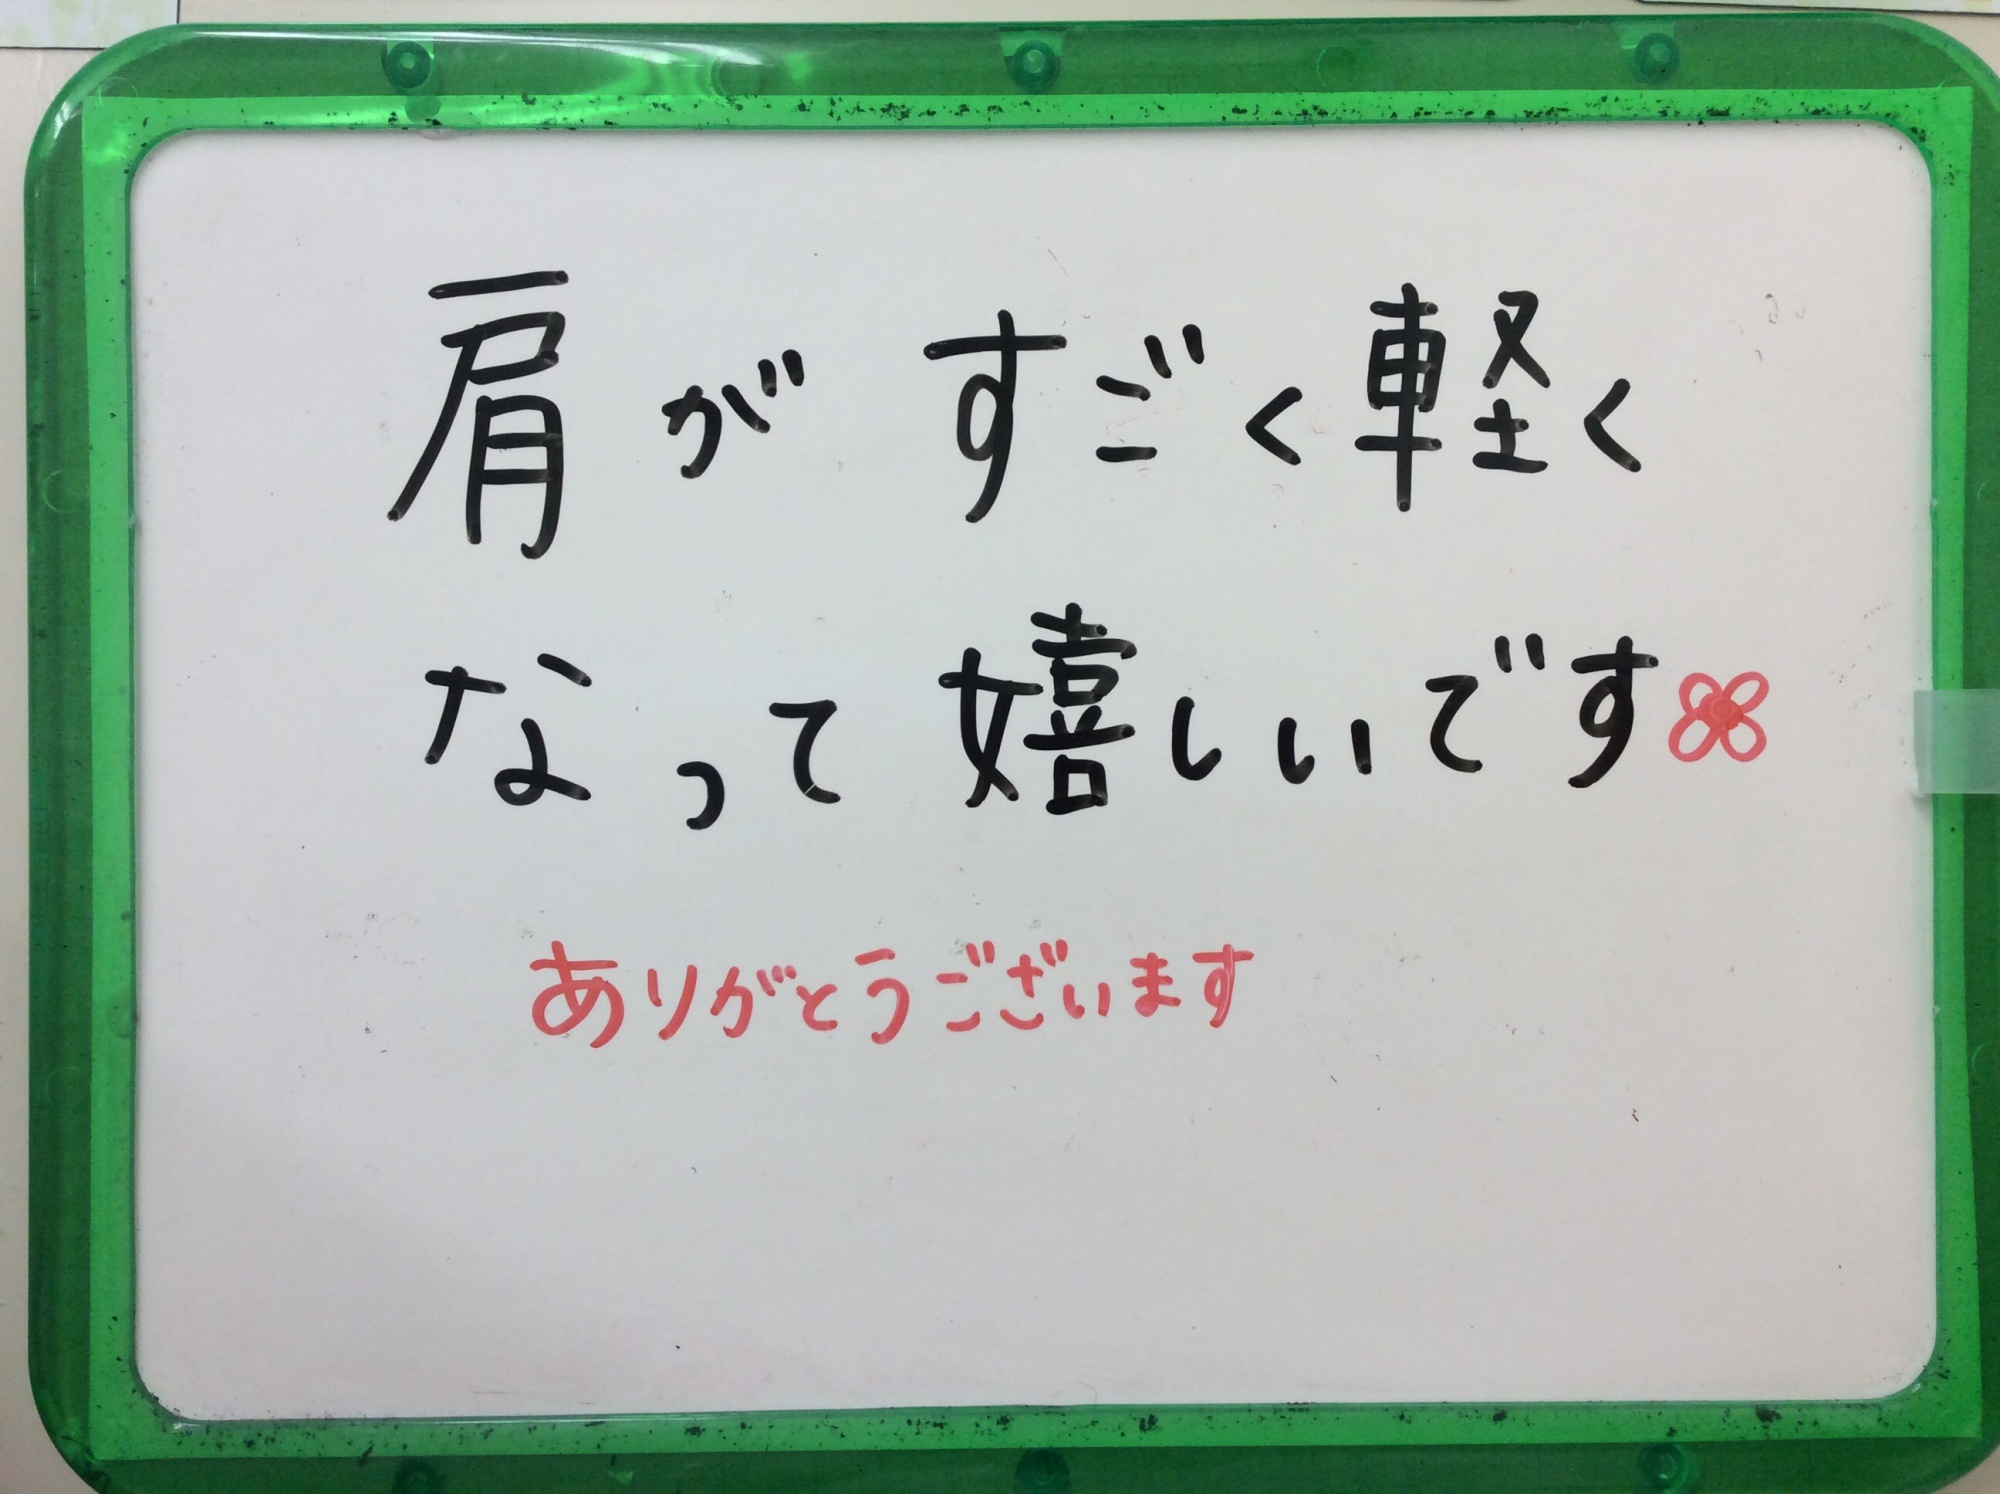 肩がすごく軽く
なって嬉しいです
ありがとうございます